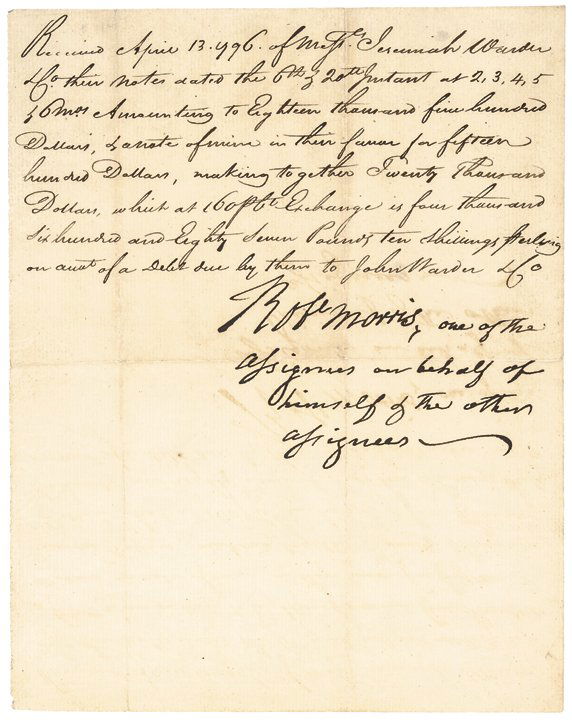 Received April 13. 1796. of Messrs. Jeremiah Warder
& Co. their notes dated the 6th & 20th Instant at 2, 3, 4, 5
& 6 Mos Amounting to Eighteen thousand five hundred
Dollars, & a note of mine in their favor for fifteen
hundred Dollars, making together Twenty Thousand
Dollars, which at 160 PCt. Exchange is four thousand
six hundred and Eighty Seven Pounds ten shillings sterling
on acct of a Debt due by them to John Warder & Co
Robt Morris, one of the
assignees on behalf of
himself & the other
assignees